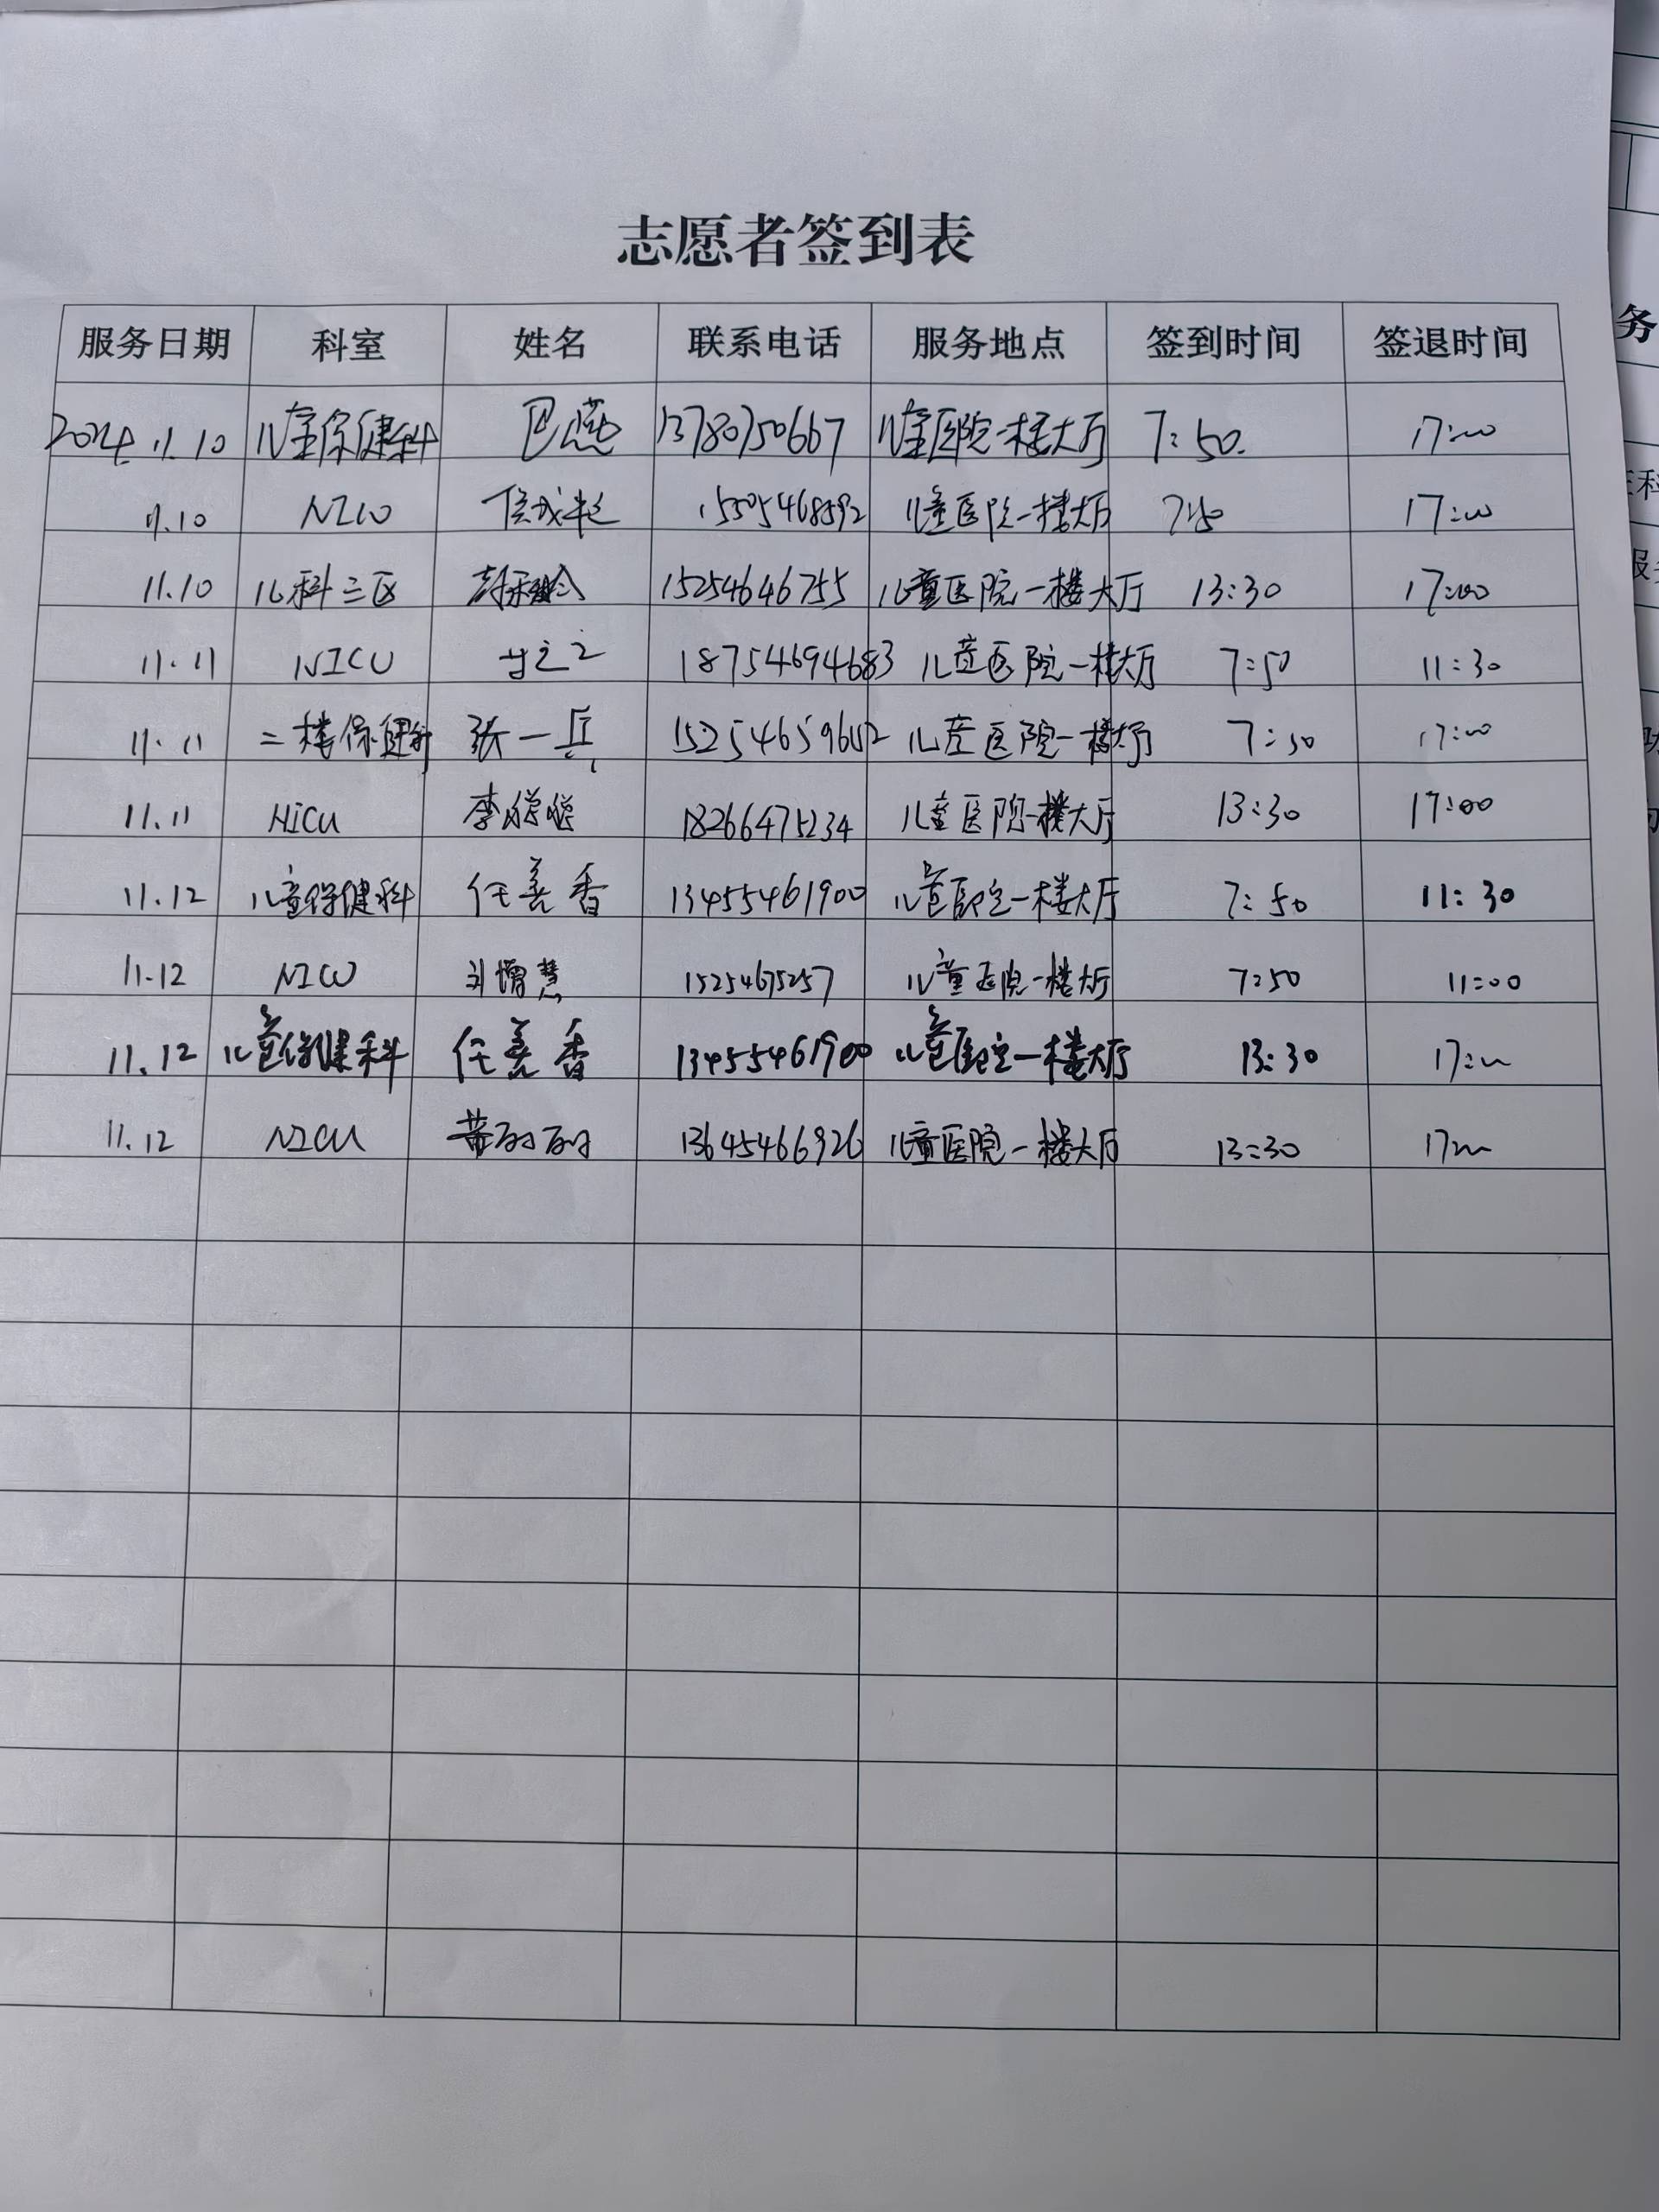 志愿者签到表
服务日期 科室 姓名 联系电话 服务地点 签到时间 签退时间
2024.11.10 儿童保健科 巴燕 13780750667 儿童医院一楼大厅 7:50. 17:00
11.10 NICU 侯成 儿童医院一楼大厅 7:50 17:00
11.10 儿科三区 15254646755 儿童医院一楼大厅 13:30 17:00
11.11 NICU 18754694683 儿童医院一楼大厅 7:50 11:30
11.11 二楼保健科 张一兵 儿童医院一楼大厅 7:50 17:00
11.11 NICU 李 18266475234 儿童医院一楼大厅 13:30 17:00
11.12 儿童保健科 任善香 13455461900 儿童医院一楼大厅 7:50 11:30
11.12 NICU 刘增慧 15254675257 儿童医院一楼大厅 7:50 11:00
11.12 儿童保健科 任善香 13455461900 儿童医院一楼大厅 13:30 17:00
11.12 NICU 13645466926 儿童医院一楼大厅 13:30 17:00
务